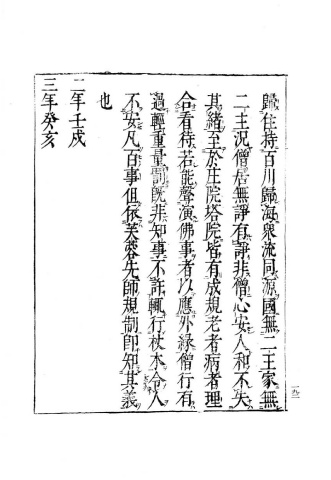 歸住持百川歸海衆流同源國無二王家無
二主況僧居無諍有諍非僧心安人和不失
其緒至於庄院塔院皆有成規老者病者理
合看待若能聲演佛事者以應外緣僧行有
過輕重量罰既非知事不許輒行杖木令人
不安凡百事但依芙蓉先師規制卽知其義
也
二年壬戌
三年癸亥